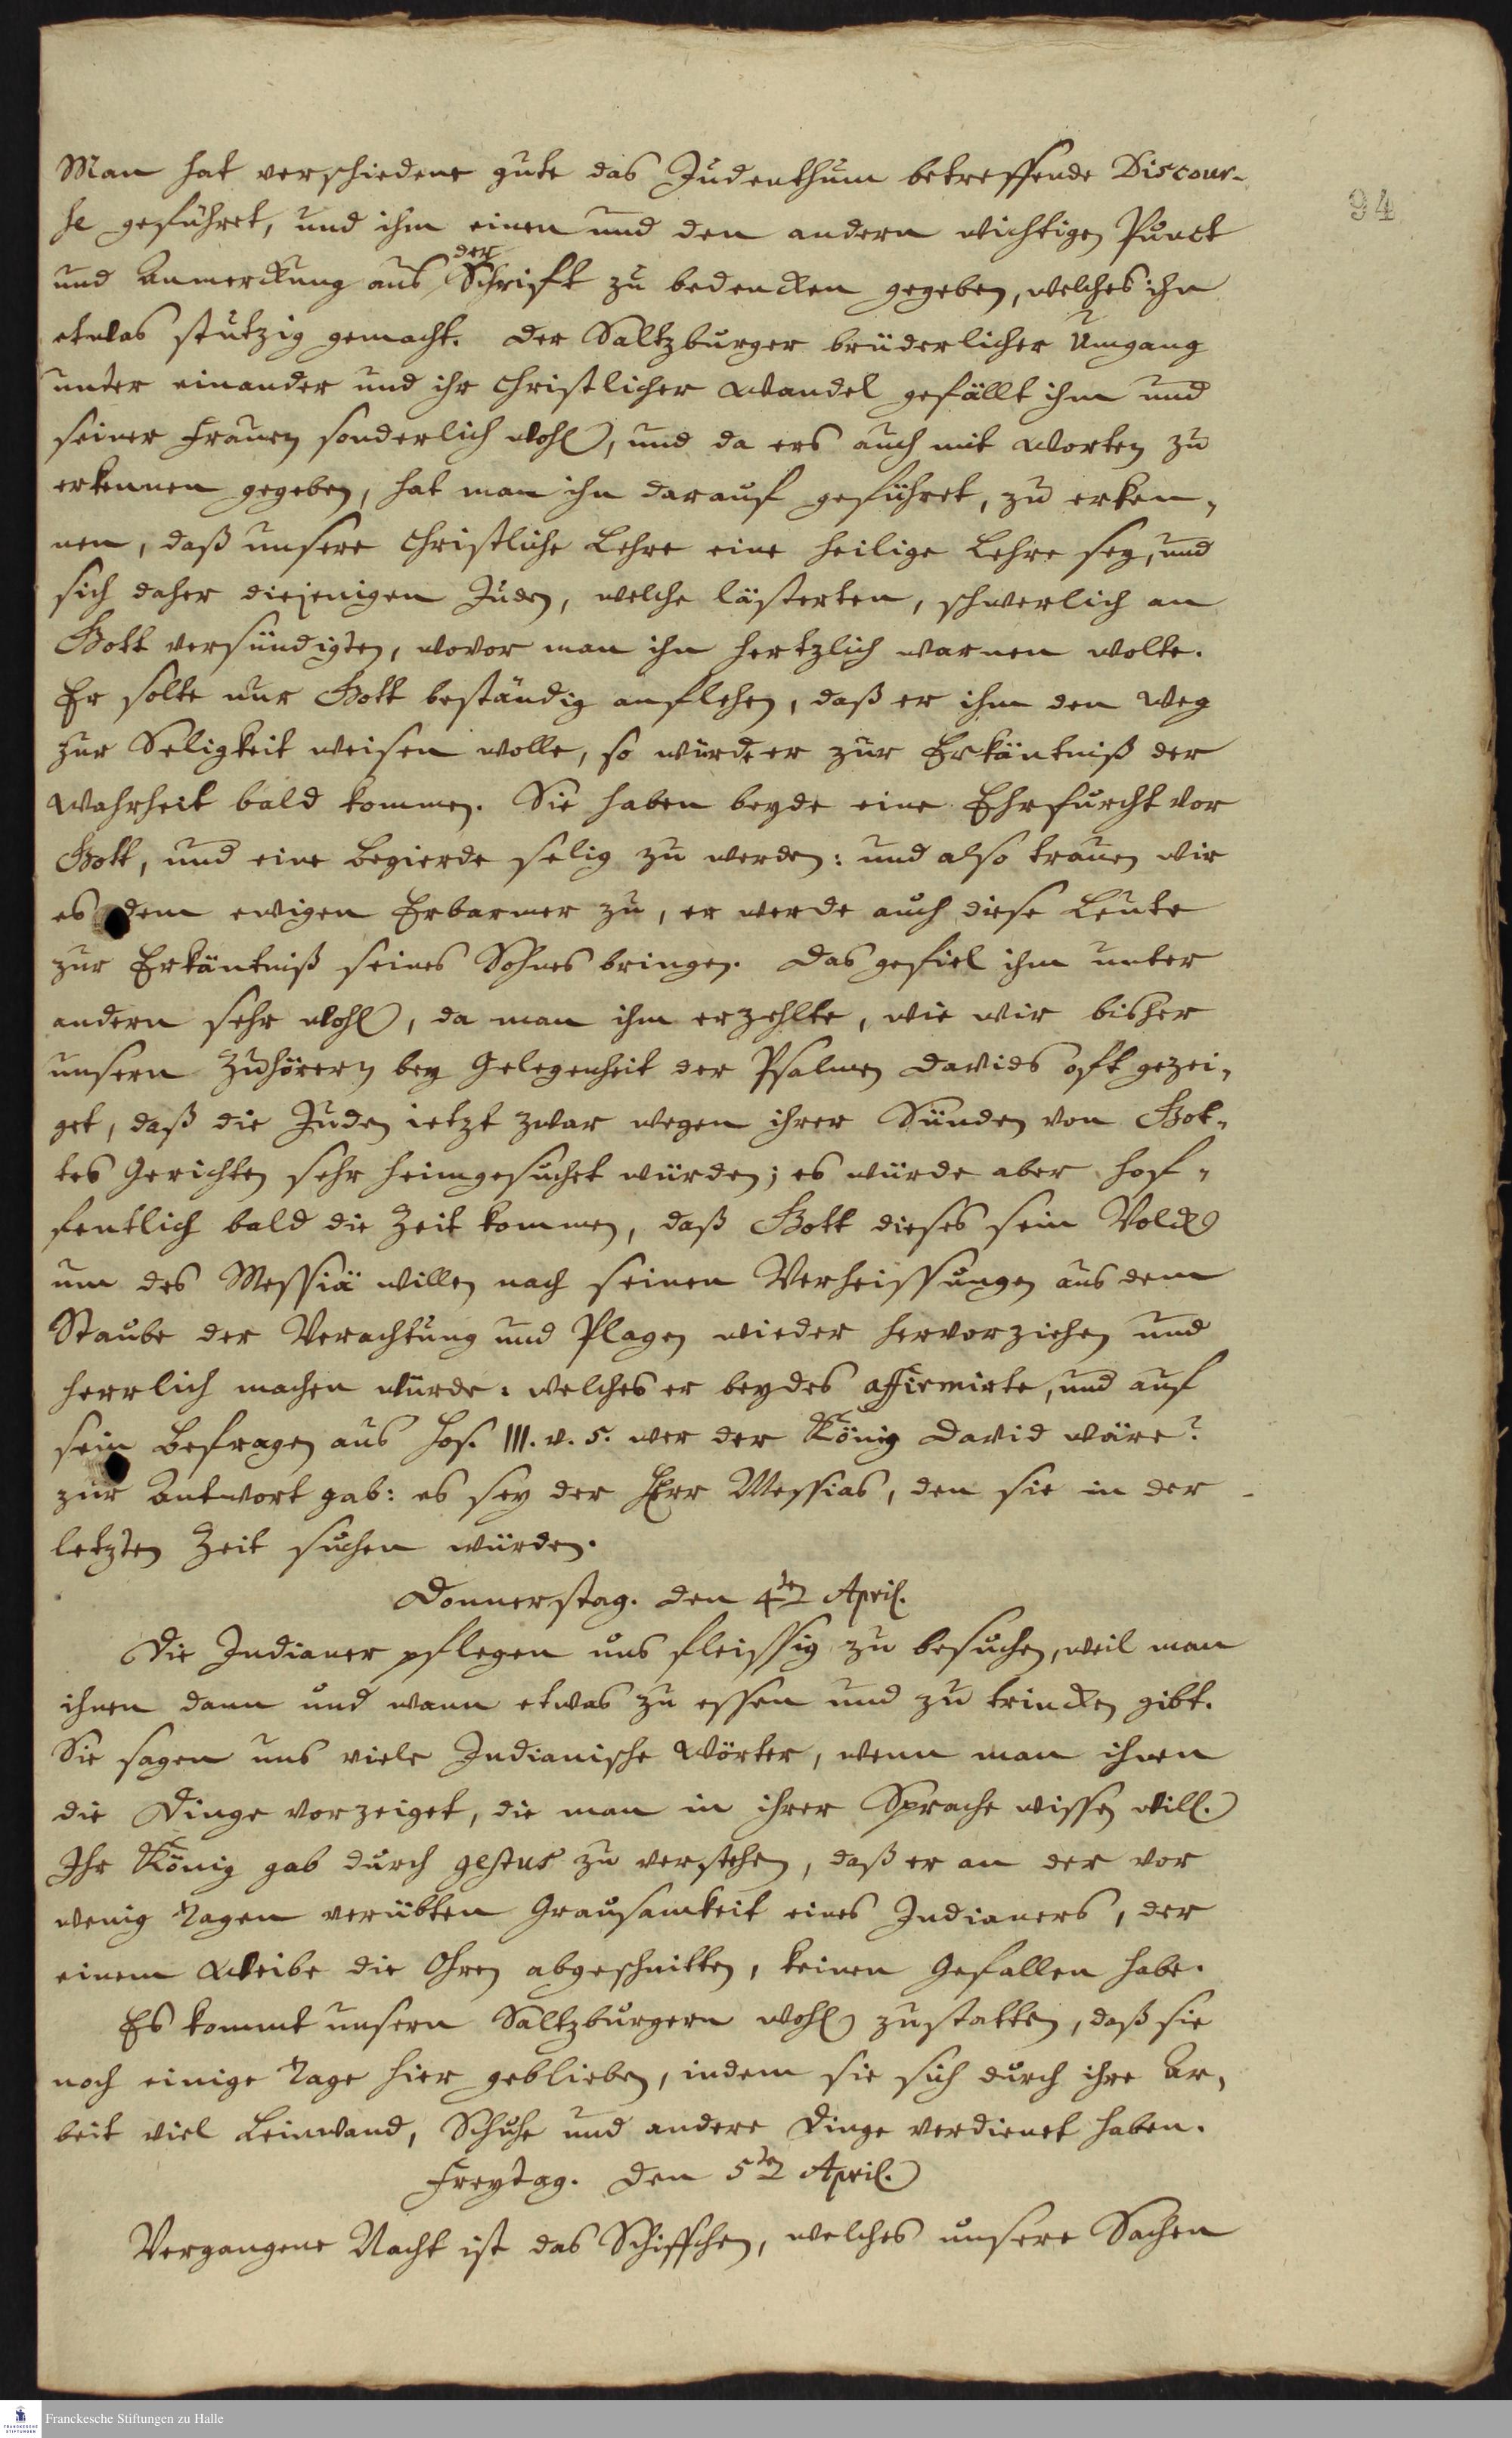 94
Man hat verschiedene gute das Judenthum betreffende Discour-
se geführet, und ihm einen und den andern wichtigen Punct
und Anmerckung aus der Schrift zu bedencken gegeben, welches ihn
etwas stutzig gemacht. Der Saltzburger brüderlicher Umgang
unter einander und ihr christlicher Wandel gefällt ihm und
seiner Frauen sonderlich wohl, und da ers auch mit Worten zu
erkennen gegeben, hat man ihn darauf geführet, zu erken-
nen, daß unsere christliche Lehre eine heilige Lehre sey, und
sich daher diejenigen Juden, welche lästerten, schwerlich an
Gott versündigten, wovor man ihn hertzlich warnen wolte.
Er solte nur Gott beständig anflehen, daß er ihm den Weg
zur Seligkeit weisen wolle, so würde er zur Erkäntniß der
Wahrheit bald kommen. Sie haben beyde eine Ehrfurcht vor
Gott, und eine Begierde selig zu werden: und also trauen wir
es dem ewigen Erbarmer zu, er werde auch diese Leute
zur Erkäntniß seines Sohnes bringen. Das gefiel ihm unter
andern sehr wohl, da man ihm erzehlte, wie wir bisher
unsern Zuhörern bey Gelegenheit der Psalmen Davids oft gezei-
get, daß die Juden ietzt zwar wegen ihrer Sünden von Got-
tes Gerichten sehr heimgesuchet würden; es würde aber hof-
fentlich bald die Zeit kommen, daß Gott dieses sein Volck
um des Messiä willen nach seinen Verheissungen aus dem
Staube der Verachtung und Plagen wieder hervorziehen und
herrlich machen würde: welches er beydes affirmirte, und auf
sein Befragen aus Hos. III. v. 5. wer der König David wäre?
zur Antwort gab: es sey der Herr Messias, den sie in der
letzten Zeit suchen würden.
Donnerstag. den 4ten April.
Die Indianer pflegen uns fleissig zu besuchen, weil man
ihnen dann und wann etwas zu essen und zu trincken gibt.
Sie sagen uns viele Indianische Wörter, wenn man ihnen
die Dinge vorzeiget, die man in ihrer Sprache wissen will.
Ihr König gab durch gestus zu verstehen, daß er an der vor
wenig Tagen verübten Grausamkeit eines Indianers, der
einem Weibe die Ohren abgeschnitten, keinen Gefallen habe.
Es kommt unsern Saltzburgern wohl zustatten, daß sie
noch einige Tage hier geblieben, indem sie sich durch ihre Ar-
beit viel Leinwand, Schuhe und andere Dinge verdienet haben.
Freytag. den 5ten April.
Vergangene Nacht ist das Schiffchen, welches unsere Sachen
FRANCKESCHE STIFTUNGEN
Franckesche Stiftungen zu Halle